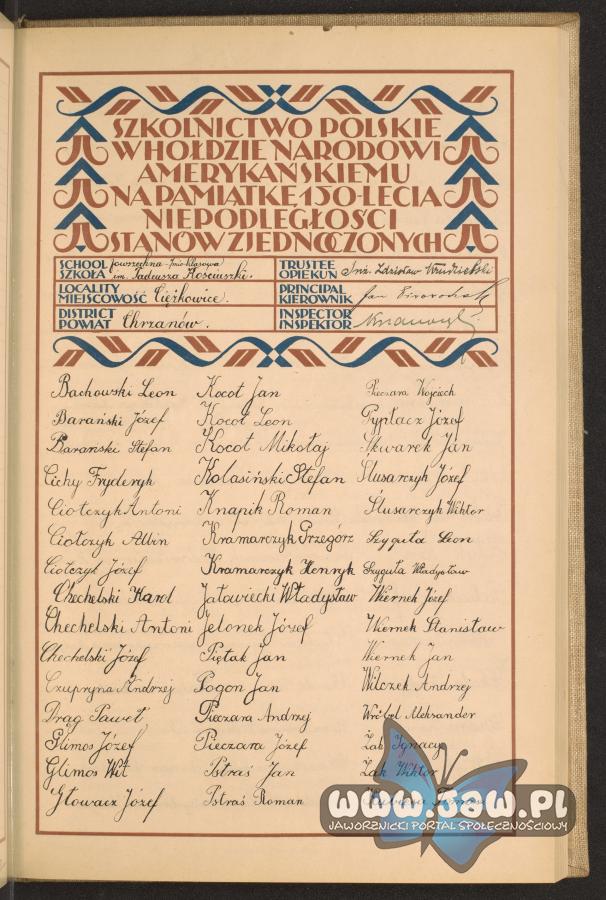 SZKOLNICTWO POLSKIE
W HOŁDZIE NARODOWI
AMERYKAŃSKIEMU
NA PAMIĄTKĘ 150-LECIA
NIEPODLEGŁOŚCI
STANÓW ZJEDNOCZONYCH
SCHOOL SZKOŁA powszechna
im. Tadeusza Kościuszki.
LOCALITY MIEJSCOWOŚĆ Ciężkowice.
DISTRICT POWIAT Chrzanów.
TRUSTEE OPIEKUN Inż. Zdzisław
PRINCIPAL KIEROWNIK Jan
INSPECTOR INSPEKTOR
Bachowski Leon
Barański Józef
Barański Stefan
Cichy Fryderyk
Ciołczyk Antoni
Ciołczyk Albin
Ciołczyk Józef
Chechelski Karol
Chechelski Antoni
Chechelski Józef
Czupryna Andrzej
Drąg Paweł
Glimos Józef
Glimos Wit
Głowacz Józef
Kocot Jan
Kocot Leon
Kocot Mikołaj
Kolasiński Stefan
Knapik Roman
Kramarczyk Grzegórz
Kramarczyk Henryk
Jatowiecki Władysław
Jelonek Józef
Piętak Jan
Pogon Jan
Pieczara Andrzej
Pieczara Józef
Pstraś Jan
Pstraś Roman
Pieczara Wojciech
Pypłacz Józef
Skwarek Jan
Ślusarczyk Józef
Ślusarczyk Wiktor
Szyguła Leon
Szyguła Władysław
Wiernek Józef
Wiernek Stanisław
Wiernek Jan
Wilczek Andrzej
Wróbel Aleksander
Żak Ignacy
Żak Wiktor
www.Jaw.pl
JAWORZNICKI PORTAL SPOŁECZNOŚCIOWY